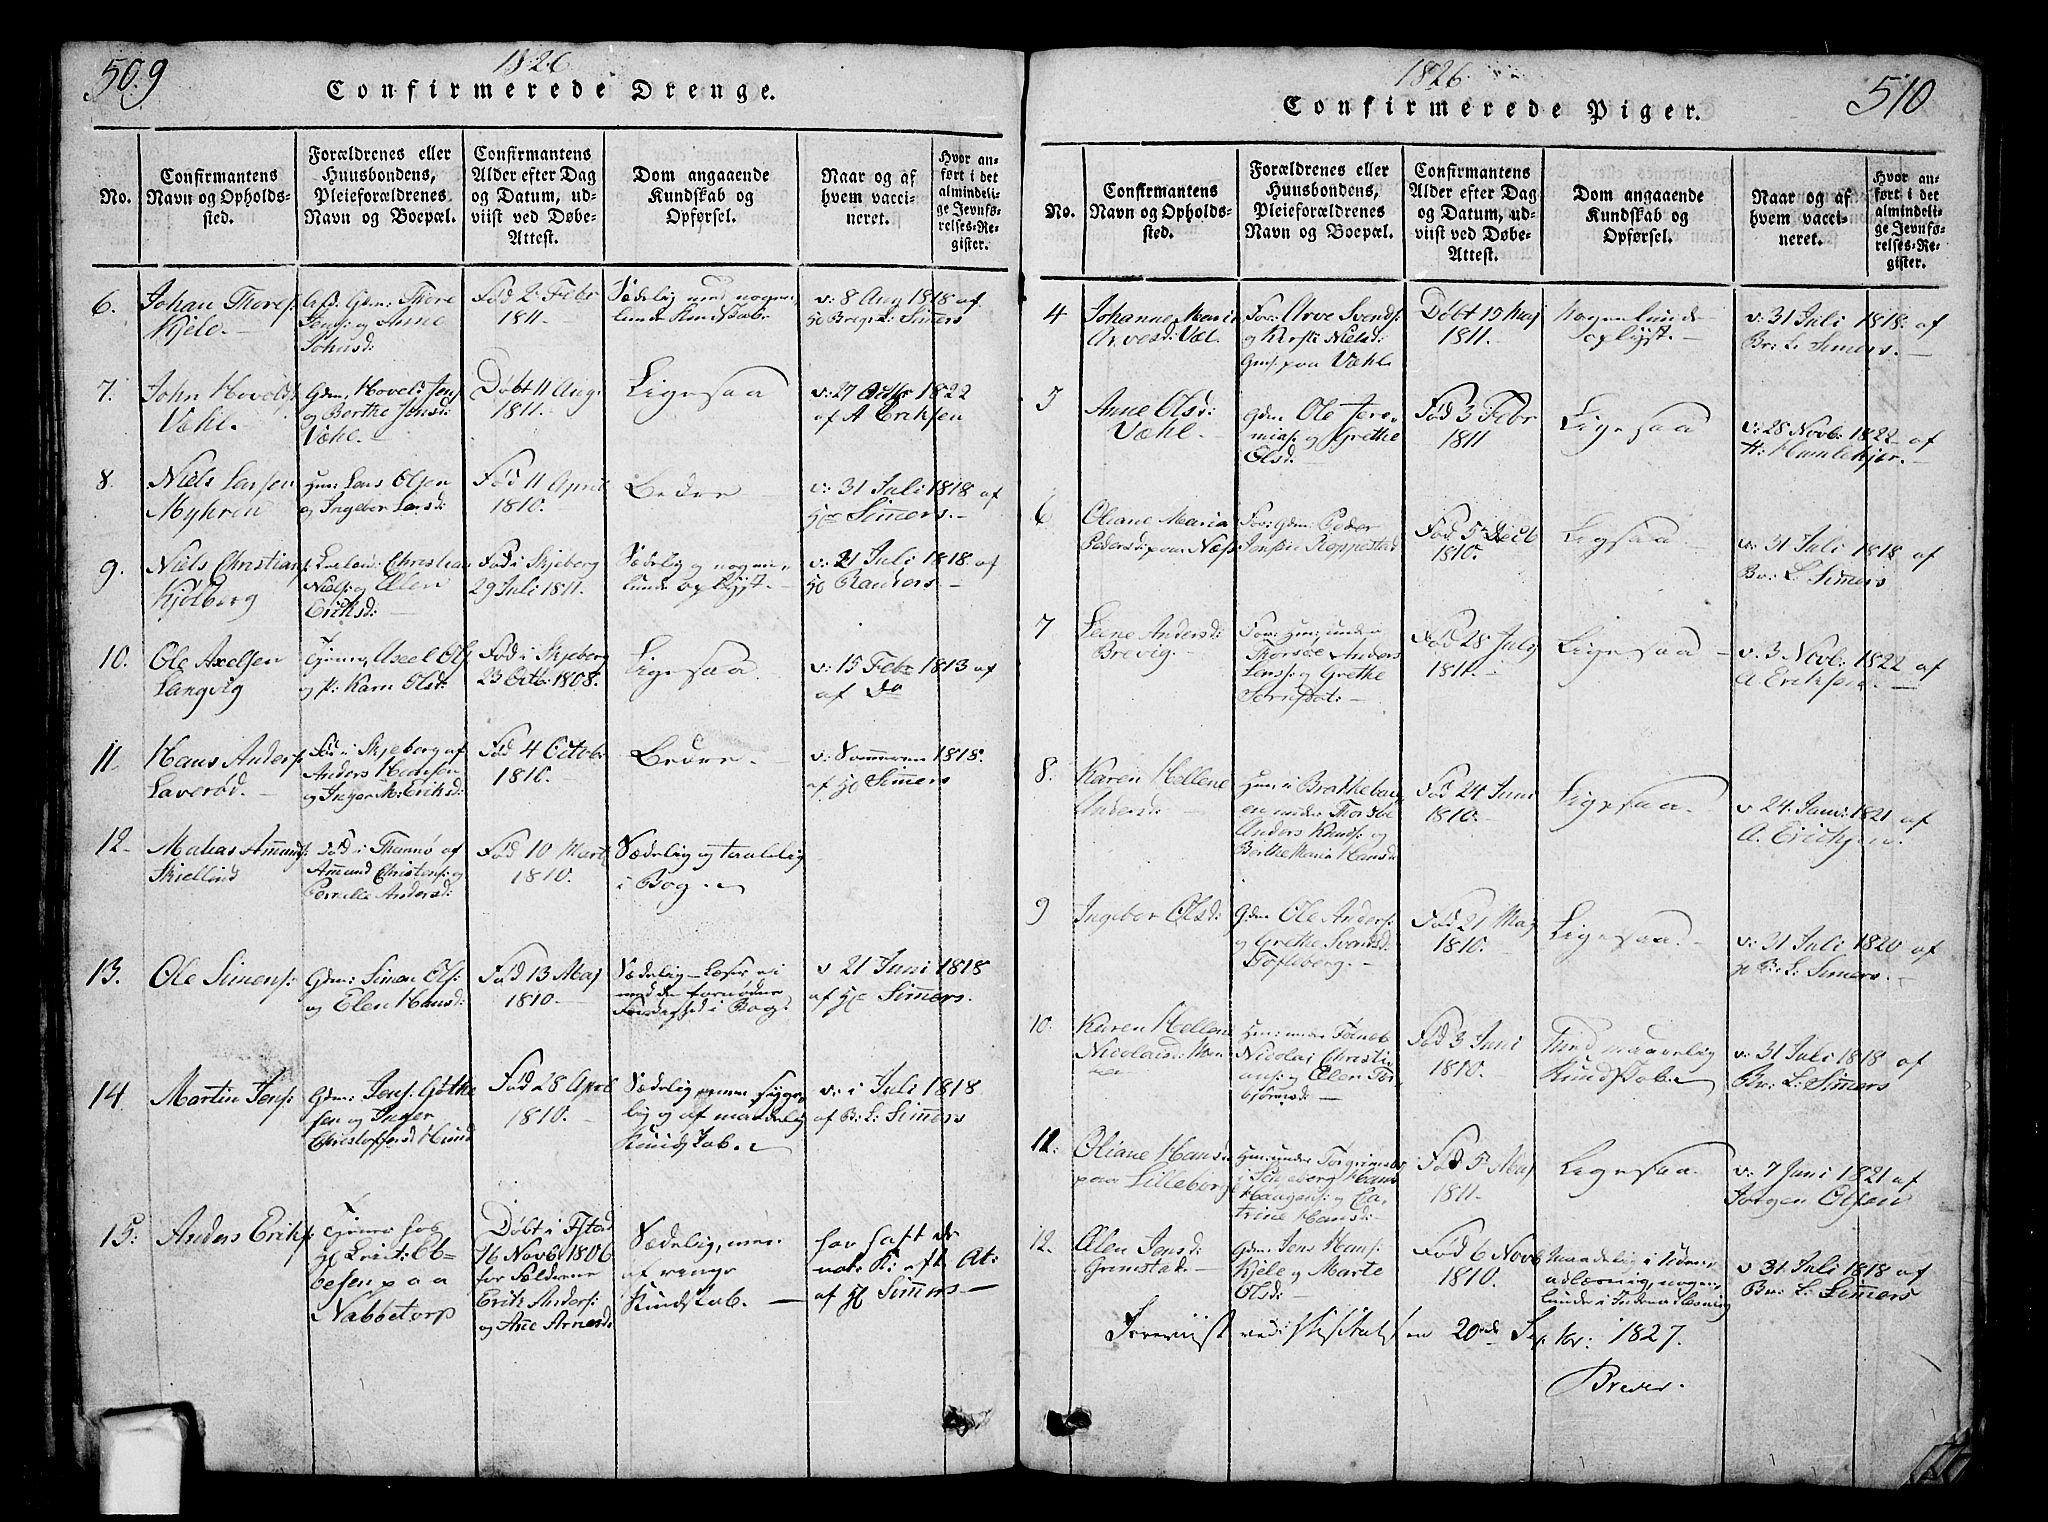 509
1826
Confirmerede Drenge.
No.
Confirmantens
Navn og Opholds-
sted.
Forældrenes eller
Huusbondens,
Pleieforældrenes
Navn og Boepæl.
Confirmantens
Alder efter Dag
og Datum, ud-
viist ved Døbe-
Attest.
Dom angaaende
Kundskab og
Opførsel.
Naar og af
hvem vacci-
neret.
Hvor an-
ført i det
almindeli-
ge Jevnfø-
relses-Re-
gister.
6.
Johan Thores:
Kjele.
Afd: Gdm: Thore
Jens: og Anne
Johnsd:
Fød 2 Febr
1811.
Sædelig med nogen-
lunde Kundskab
v: 8 Aug 1818 af
Simers
7.
John Hovelds:
Væhl.
Gdm: Hovel: Jens:
og Berthe Jensd:
Væhl.
Døbt 11 Aug:
1811.
Ligesaa
v: 27 Octbr 1822
af A Eriksen
8.
Niels Larsen
Myhren
Hum: Lars Olsen
og Ingebor Larsd:
Fød 11 April
1810.
Bedre
v: 31 Juli 1818 af
Hr Simers.
9.
Niels Christians:
Kjølberg
Christian
Niels: og Ellen
Eriksd:
Fød i Skjeberg
29 Juli 1811.
Sædelig og nogen-
lunde oplyst.
v: 21 Juli 1818. af
Randers.
10.
Ole Axelsen
Langvig
Axel Ols:
og Karn Olsd:
Fød i Skjeberg
23 Octb: 1808.
Ligesaa
v: 15 Febr 1813 af
af Do
11
Hans Anders:
Laverød.
Fød i Skjeberg af
Anders Hansen
og Inger M: Eriksd:
Fød 4 Octobr
1810.
Bedre.
v: Sommeren 1818.
af Hr Simers
12
Mathias Amunds:
Skiellind
Fød i Thunø af
Amund Christens: og
Pernille Andersd:
Fød 10 Mart
1810.
Sædelig og taalelig
i Bog.
13.
Ole Simens:
Gdm: Simen Ols:
og Elen Hansd:
Fød 13 Maj
1810.
Sædelig – Læser ei
med de fornødne
Færdighed i Bog
v 21 Juni 1818
af Hr Simers.
14
Martin Jens:
Gdm: Jens: Gøthe
sen og Inger
Christophersd Hund
Fød 28 April
1810.
Sædelig, men sygge-
lig og af maadelig
Kundskab.
v: i Juli 1818
af B: L: Simers
15.
Anders Eriks:
hos
Hr Ebbesen paa
Nabbetorp
Døbt i
16 Novbr 1806
for Fældrene
Erik Anders:
og Ane Arnesd:
Sædelig, men
af ringe
Kundskab.
har haft de
nat: K: eft. At:
af Hr Simers
510
1826
Confirmerede Piger.
No.
Confirmantens
Navn og Opholds-
sted.
Forældrenes eller
Huusbondens,
Pleieforældrenes
Navn og Boepæl.
Confirmantens
Alder efter Dag
og Datum, ud-
viist ved Døbe-
Attest.
Dom angaaende
Kundskab og
Opførsel.
Naar og af
hvem vacci-
neret.
Hvor an-
ført i det
almindeli-
ge Jevnfø-
relses-Re-
gister.
4
Johanne Maria
Arvesd: Væl.
For: Arve Svends:
og Kirste Nielsd:
Gms: paa Væhle
Døbt 19 Maj
1811.
Nogenlunde
oplyst.
v: 31 Juli 1818. af
Br: L: Simers.
5
Anne Olsd:
Væhl.
Gdm Ole Jere-
mias: og Grethe
Olsd:
Fød 3 Febr
1811
Ligesaa
v: 28 Novb: 1822 af
H: Humlekjær.
6
Oliane Maria
Pedersd: paa Næs:
For: Gdm: Peder
Jensen Roppestad
Fød 5 Decb
1810.
Ligsaa
v: 31 Juli 1818 af
Br: L: Simers
7
Lene Andersd:
Brevig.
For: Hum: under
Thorsøe Anders
Lars: og Grethe
Fød 28 July
1811.
Ligesaa
v. 3 Novb: 1822 af
A Eriksen.
8.
Karen Hellene
Andersd:
Hum: i Brekkebak-
en under Thorsøe
Anders Knuds: og
Berthe Maria Hansd:
Fød 24 Juni
1810.
Ligesaa.
v 24 Juni 1821 af
A. Erichsen.
9
Ingebor Olsd:
Gdm Ole Anders:
og Grethe Svendsd:
Tofteberg.
Fød 21 Maj
1810.
Ligesaa.
v: 31 Juli 1820 af
Hr B: L: Simers.
10.
Karen Hellene
Nicolaid:
Hum: under
Nicolai Christi-
ans: og Elen Tor-
bjørnsd:
Fød 3 Juni
1810.
med maadelig
Kundskab.
v: 31 Juli 1818 af
Br: L: Simers
11.
Oliane Hansd:
paa Lilleborge
Hum: under Torgrimsby
i Skjeberg Hans
Haagens: og Ca-
trine Hansd:
Fød 5 Maj
1811.
Ligesaa.
v: 7 Juni 1821 af
Jørgen Olsen
12.
Elen Jensd:
Grimstad:
Gdm: Jens Hans:
Kjele og Marte
Olsd:
Fød 6 Novb
1810.
Maadelig i Uden-
adlæsning, nogen-
lunde i Indenadlæsning
v 31 Juli 1818 af
Br: L: Simers
Foreviist ved Visitatsen 20de Septbr: 1827.